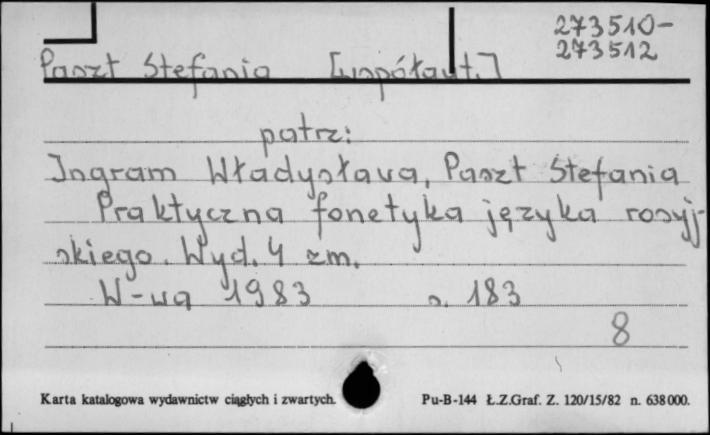 273510-
273512
Paszt Stefania [współaut.]
patrz:
Ingram Władysława, Paszt Stefania
Praktyczna fonetyka języka rosyj-
skiego. Wyd. 4 zm.
W-wa 1983 s. 183
8
Karta katalogowa wydawnictw ciągłych i zwartych. Pu-B-144 Ł.Z.Graf. Z. 120/15/82 n. 638 000.